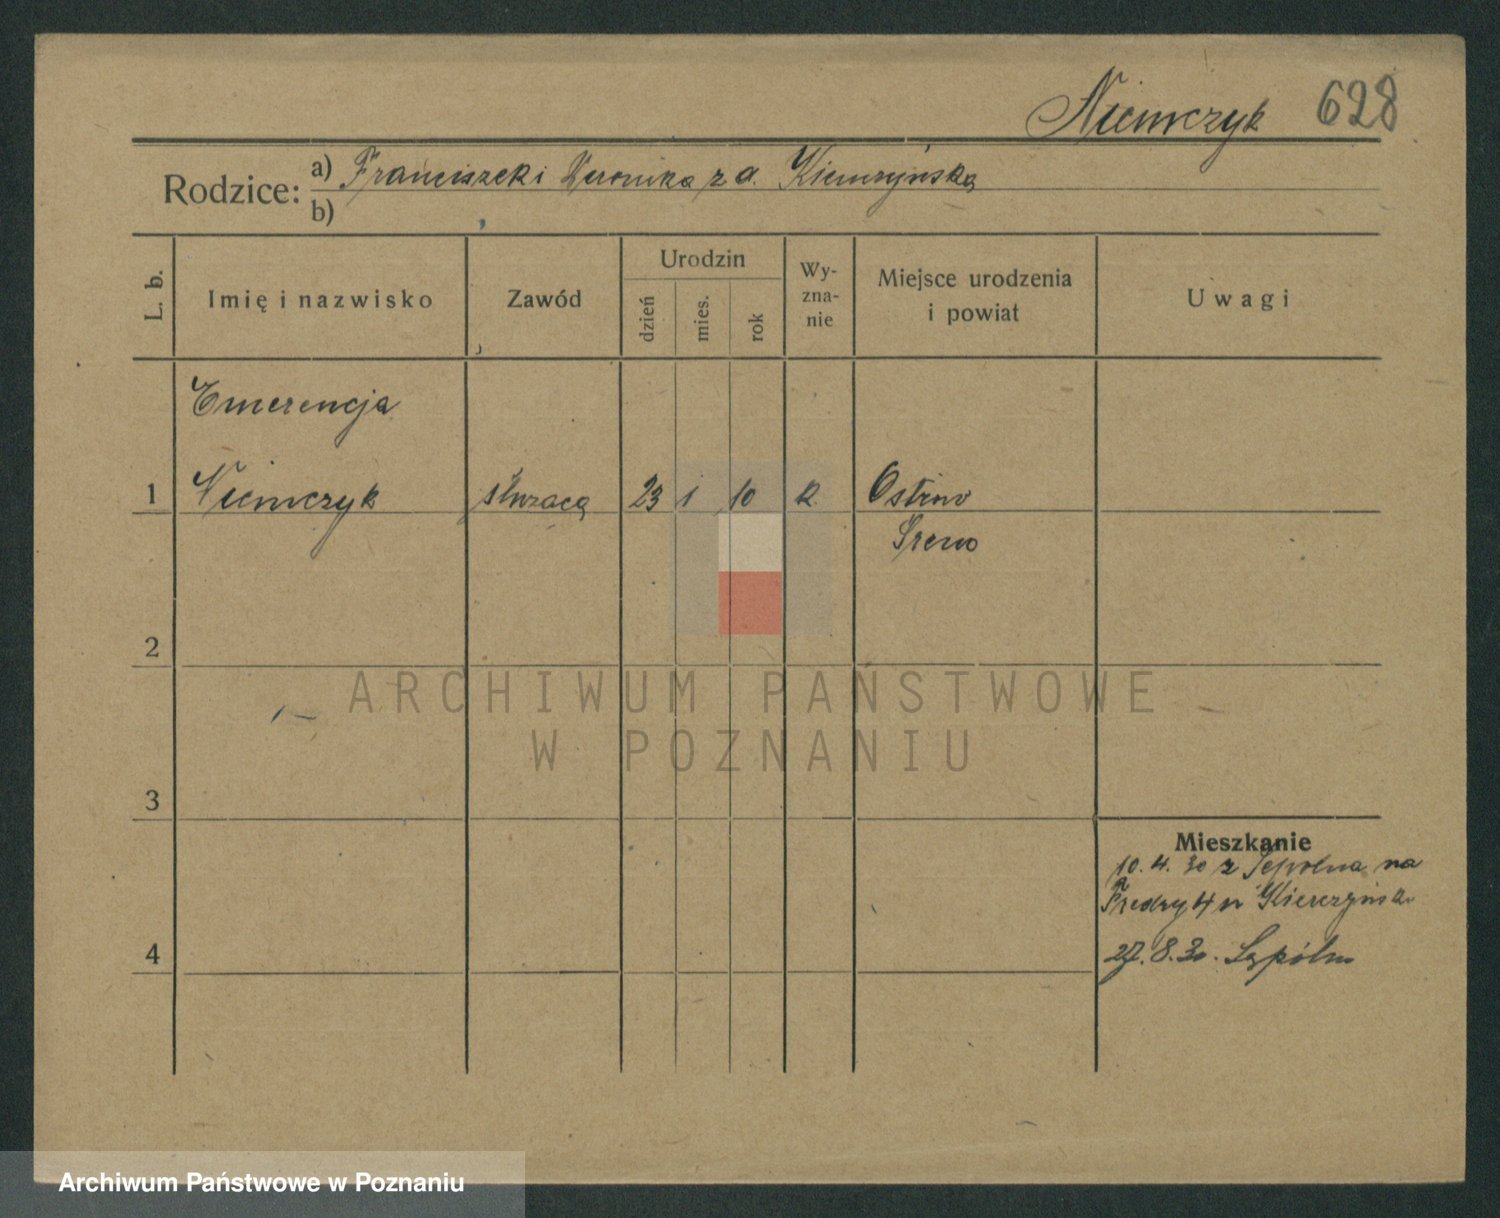 Niemczyk 628
Rodzice: a) Franciszek i Weronika z d.
b)
L. b.
Imię i nazwisko
Zawód
Urodzin
dzień
mies.
rok
Wy-
zna-
nie
Miejsce urodzenia
i powiat
Uwagi
Emerencja
1 Niemczyk służąca 23 1 10 R. Ostrow
Śrem
2
ARCHIWUM PAŃSTWOWE
W POZNANIU
3
Mieszkanie
10. 4. 30 z Sępolna na
Fredry 4 u
27. 8. 30. Sępólno
4
Archiwum Państwowe w Poznaniu